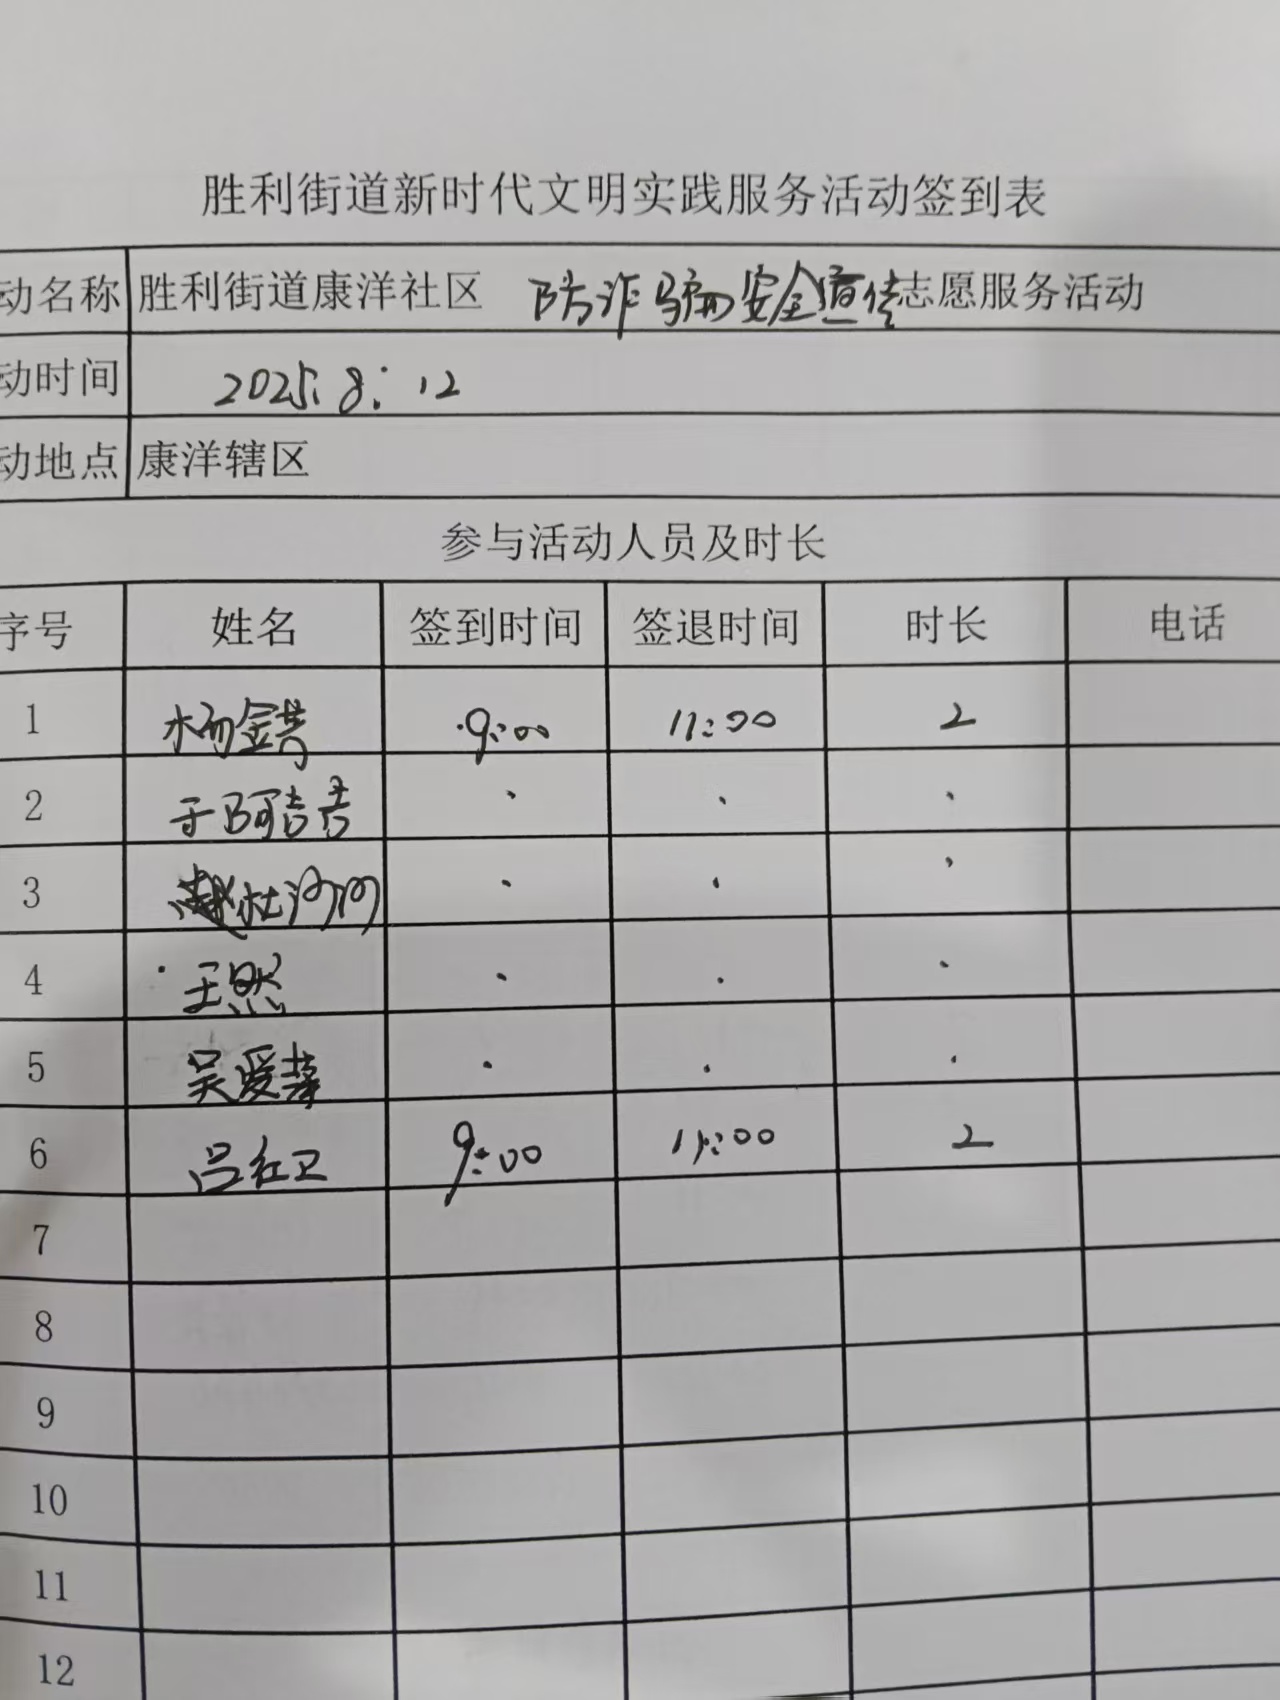 胜利街道新时代文明实践服务活动签到表
动名称 胜利街道康洋社区 防诈骗安全宣传志愿服务活动
动时间 2025.8.12
动地点 康洋辖区
参与活动人员及时长
序号 姓名 签到时间 签退时间 时长 电话
1 杨金 9:00 11:00 2
2 于阿吉
3 赵杜
4 王然
5 吴爱
6 吕红卫 9:00 11:00 2
7
8
9
10
11
12